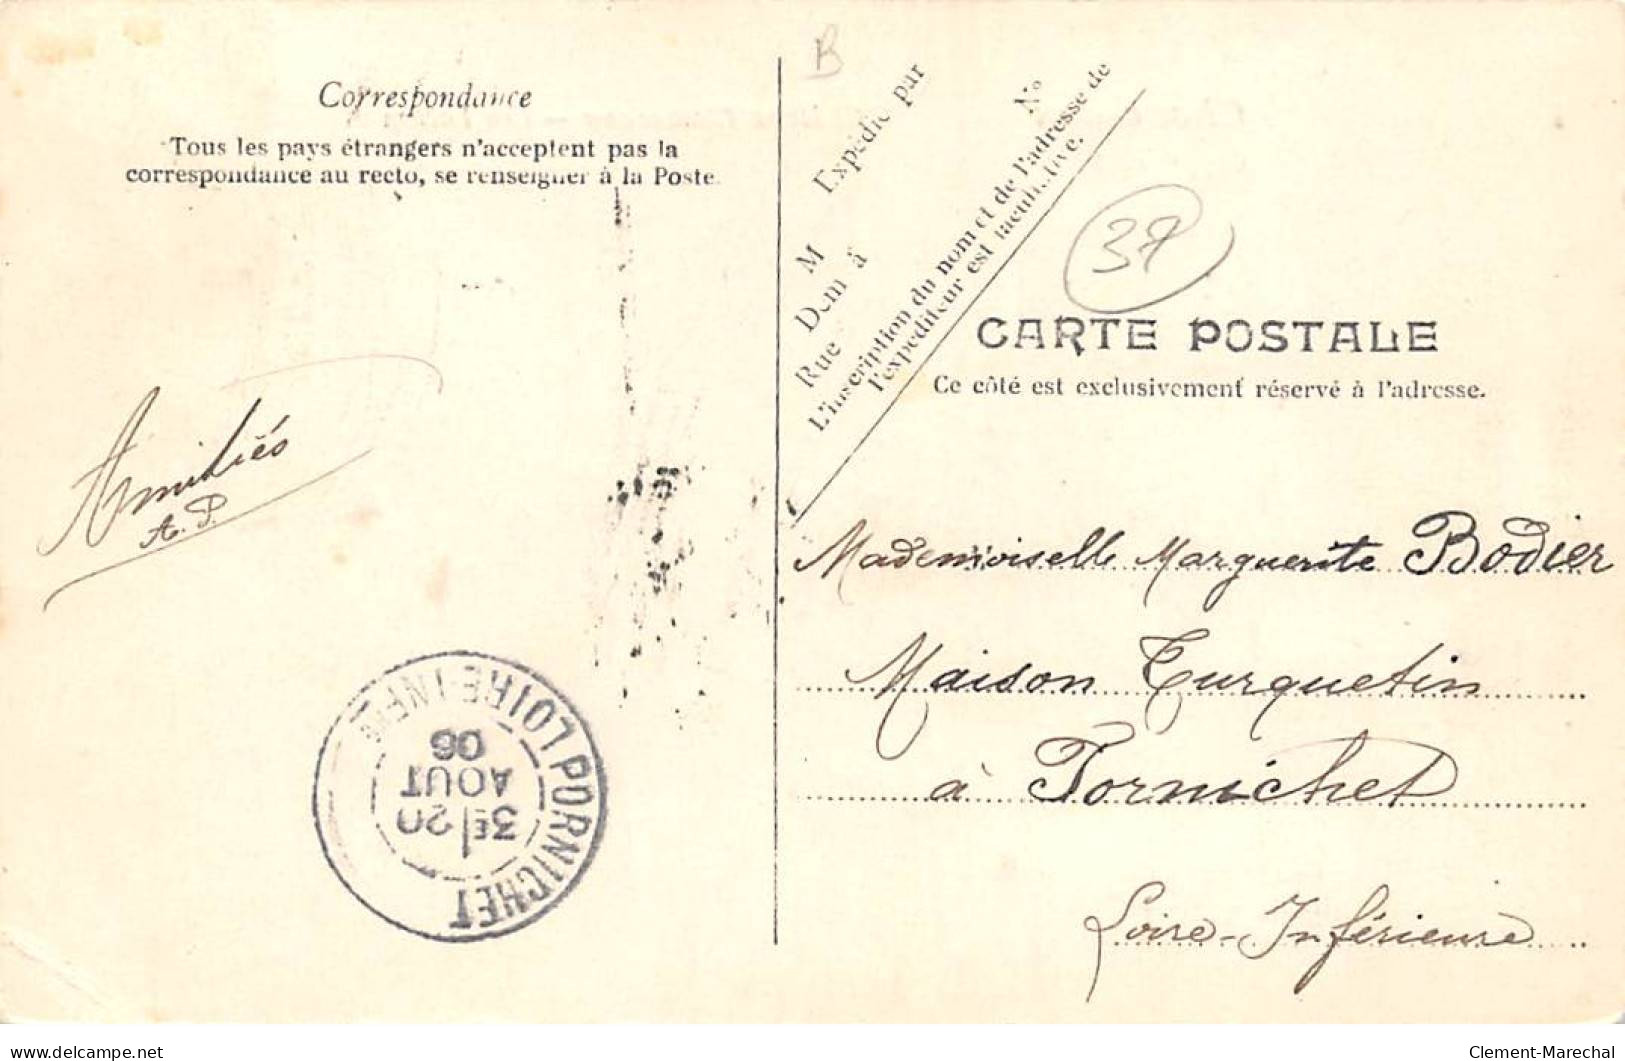 Correspondance
Tous les pays étrangers n'acceptent pas la
correspondance au recto, se renseigner à la Poste.
Amitiés
A. P.
PORNICHET LOIRE-INFRE
3E/20
AOUT
06
B
Expédié par
M
Dem à
Rue No
L'inscription du nom et de l'adresse de
l'expéditeur est facultative.
37
CARTE POSTALE
Ce côté est exclusivement réservé à l'adresse.
Mademoiselle Marguerite Bodier
Maison Turquetin
à Pornichet
Loire-Inférieure
delcampe.net
Clement-Marechal